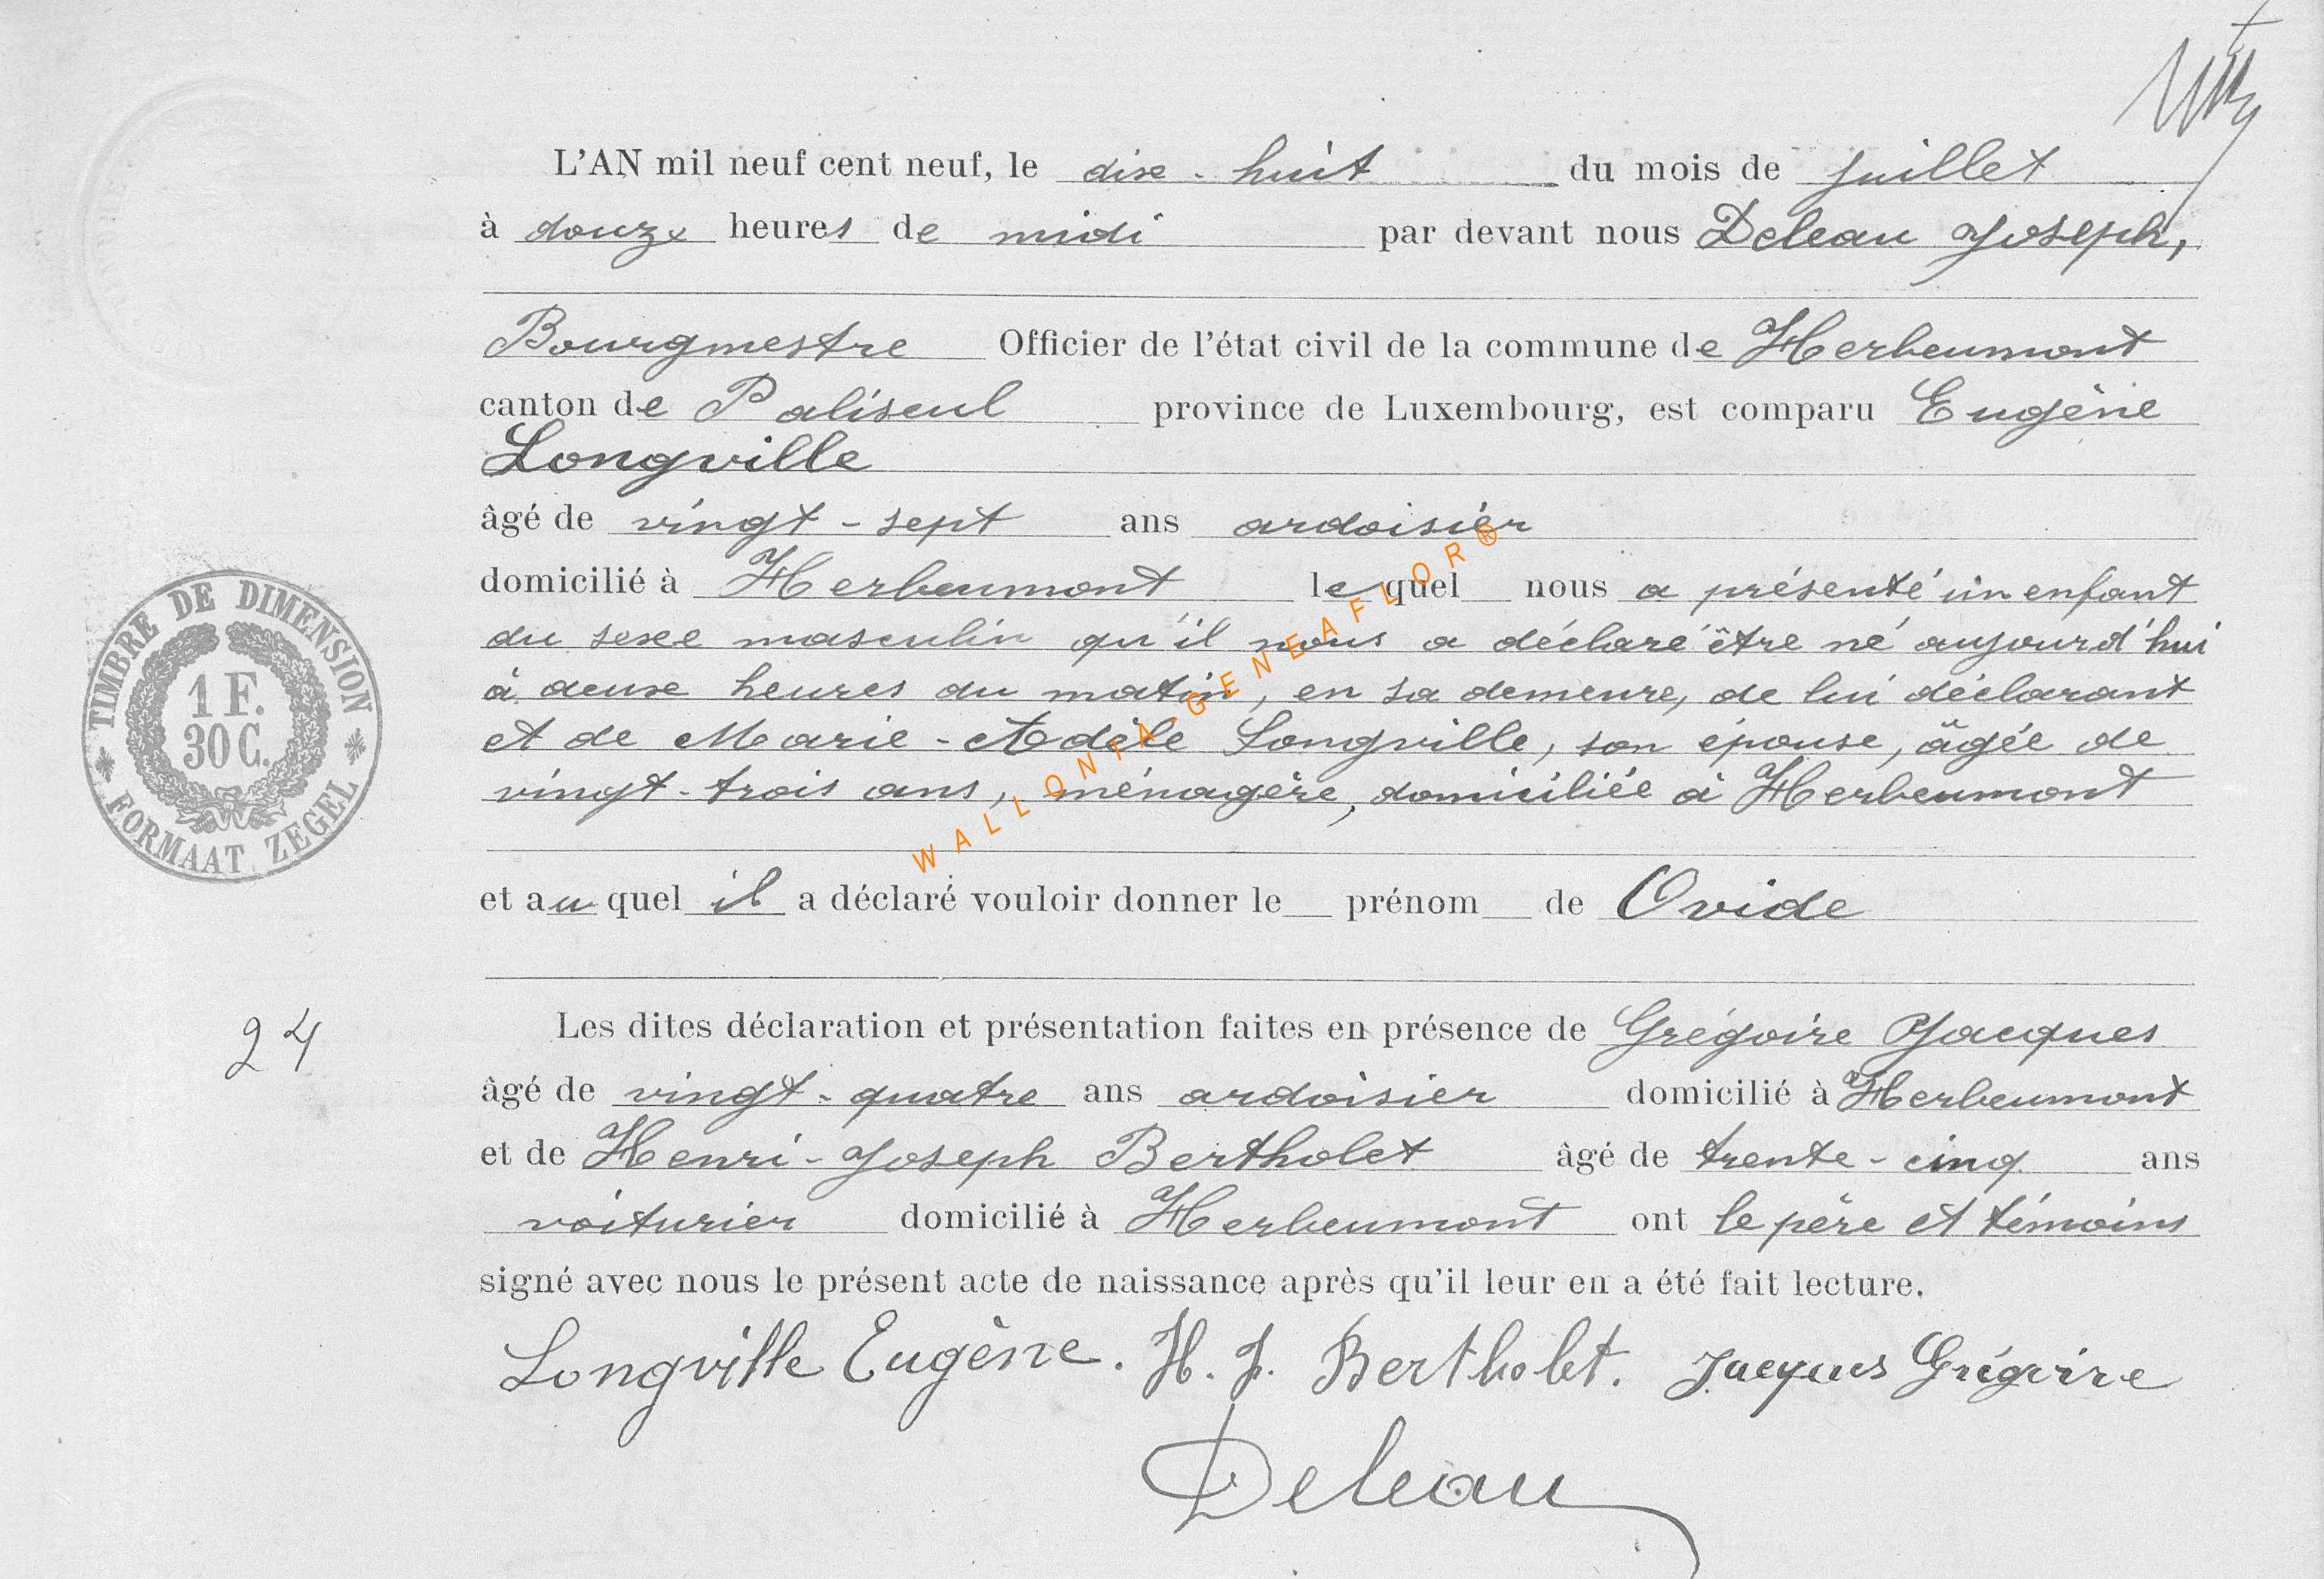 L'AN mil neuf cent neuf, le dix-huit du mois de juillet
à douze heures de midi par devant nous Deleau Joseph,
Bourgmestre Officier de l'état civil de la commune de Herbeumont
canton de Paliseul province de Luxembourg, est comparu Eugène
Longville
âgé de vingt-sept ans ardoisier
domicilié à Herbeumont lequel nous a présenté un enfant
du sexe masculin qu'il nous a déclaré être né aujourd'hui
à deux heures du matin, en sa demeure, de lui déclarant
et de Marie-Adèle Longville, son épouse, âgée de
vingt-trois ans, ménagère, domiciliée à Herbeumont
et auquel il a déclaré vouloir donner le prénom de Ovide
Les dites déclaration et présentation faites en présence de Grégoire Jacques
âgé de vingt-quatre ans ardoisier domicilié à Herbeumont
et de Henri-Joseph Bertholet âgé de trente-cinq ans
voiturier domicilié à Herbeumont ont le père et témoins
signé avec nous le présent acte de naissance après qu'il leur en a été fait lecture.
Longville Eugène. H. J. Bertholet. Jacques Grégoire
Deleau
24
TIMBRE DE DIMENSION
1 F.
30 C.
FORMAAT ZEGEL
WALLONIA-GENEAFLOR®